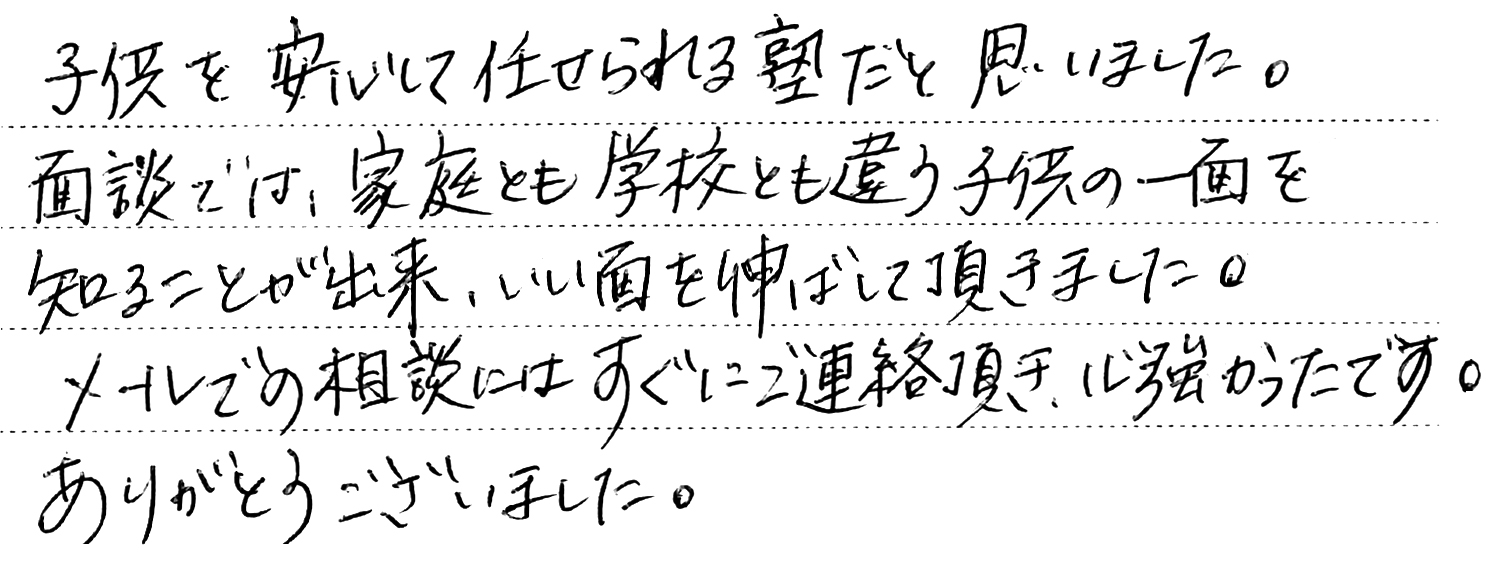 子供を安心して任せられる塾だと思いました。
面談では、家庭とも学校とも違う子供の一面を
知ることが出来、いい面を伸ばして頂きました。
メールでの相談にはすぐにご連絡頂き、心強かったです。
ありがとうございました。